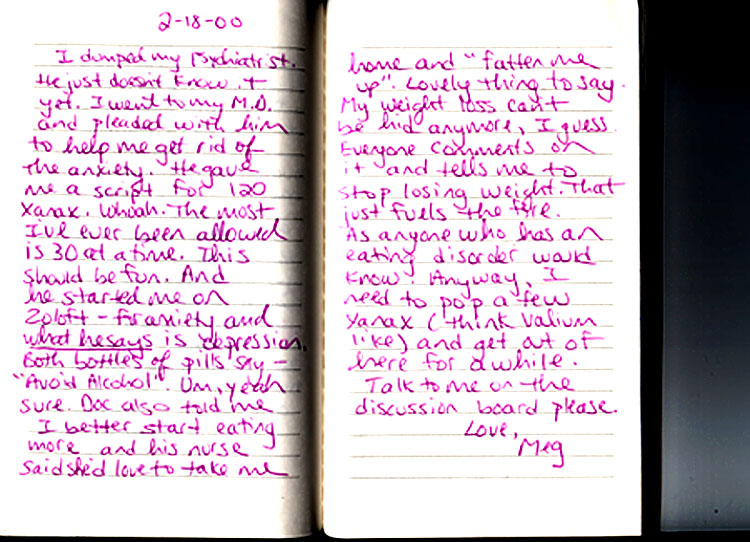 2-18-00
I dumped my Psychiatrist.
He just doesnt know it
yet. I went to my M.D.
and pleaded with him
to help me get rid of
the anxiety. He gave
me a script for 120
Xanax. Whoah. The most
I've ever been allowed
is 30 at a time. This
should be fun. And
he started me on
Zoloft - for anxiety and
what he says is depression.
Both bottles of pills say -
"Avoid Alcohol". Um, yeah
sure. Doc also told me
I better start eating
more and his nurse
said she'd love to take me
home and "fatten me
up". Lovely thing to say.
My weight loss can't
be hid anymore, I guess.
Everyone comments on
it and tells me to
stop losing weight. That
just fuels the fire.
As anyone who has an
eating disorder would
know! Anyway, I
need to pop a few
Xanax (think Valium
like) and get out of
here for awhile.
Talk to me on the
discussion board please.
Love,
Meg